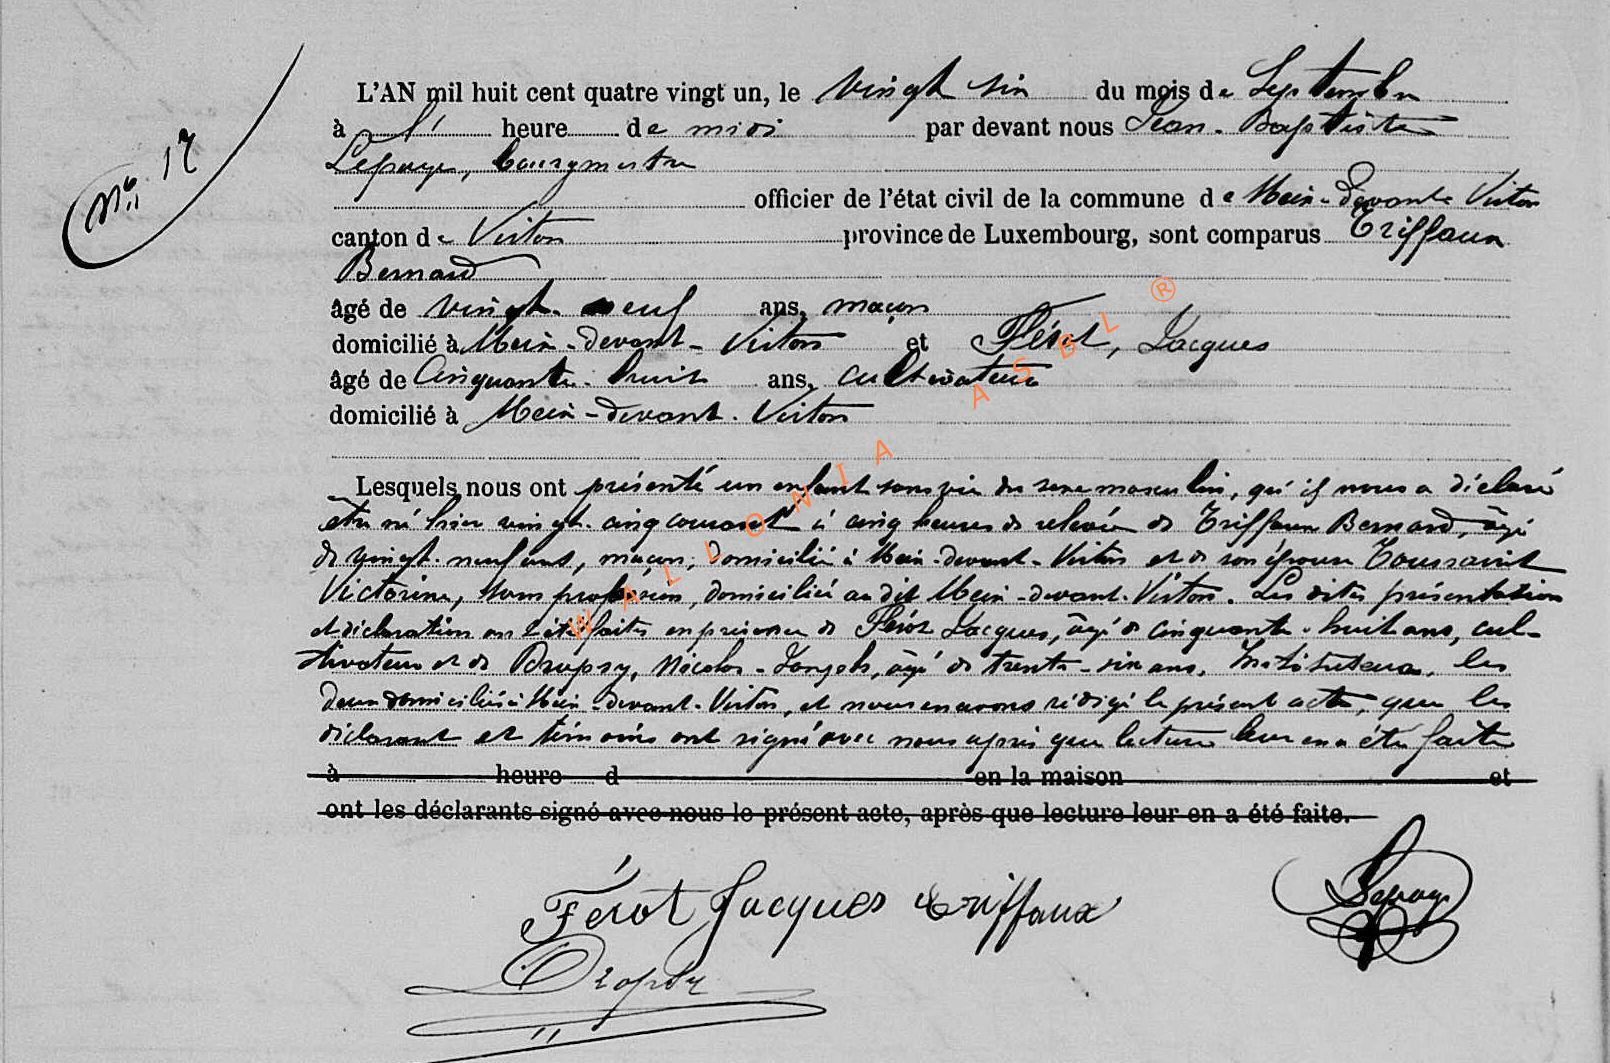 N° 17
L'AN mil huit cent quatre vingt un, le vingt six du mois de Septembre
à l' heure de midi par devant nous Jean-Baptiste
Lepage, bourgmestre
officier de l'état civil de la commune de Meix-devant-Virton
canton de Virton province de Luxembourg, sont comparus Triffaux
Bernard
âgé de vingt-neuf ans, maçon
domicilié à Meix-devant-Virton et Férot, Jacques
âgé de Cinquante-huit ans, cultivateur
domicilié à Meix-devant-Virton
Lesquels nous ont présenté un enfant sans vie du sexe masculin, qu'il nous a déclaré
être né hier vingt-cinq courant à cinq heures de relevée de Triffaux Bernard, âgé
de vingt-neuf ans, maçon, domicilié à Meix-devant-Virton et de son épouse Toussaint
Victorine, sans profession, domiciliée au dit Meix-devant-Virton. Les dites présentation
et déclaration ont été faites en présence de Férot Jacques, âgé de cinquante-huit ans, cul-
tivateur et de Dropsy, Nicolas-Joseph, âgé de trente-six ans, Instituteur, les
deux domiciliés à Meix-devant-Virton, et nous en avons rédigé le présent acte, que les
déclarant et témoins ont signé avec nous après que lecture leur en a été faite
à heure d en la maison et
ont les déclarants signé avec nous le présent acte, après que lecture leur en a été faite.
Férot Jacques Triffaux Lepage
Dropsy
WALLONIA ASBL ®